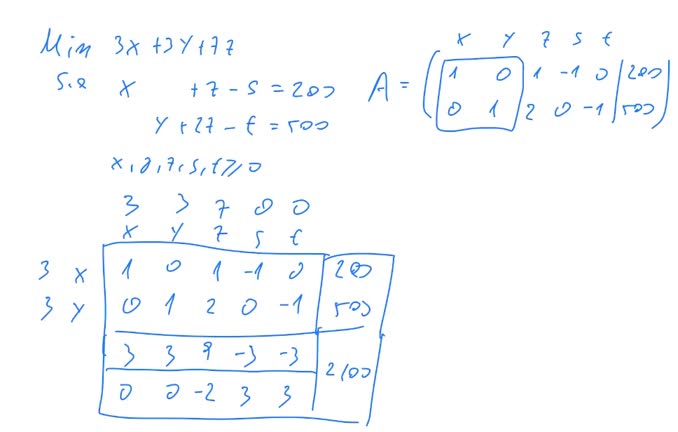 Min 3x + 3y + 7z
s.a x + z - s = 200
y + 2z - t = 500
x, y, z, s, t ≥ 0
x y z s t
A = ( 1 0 1 -1 0 | 200
0 1 2 0 -1 | 500 )
3 3 7 0 0
x y z s t
3 x 1 0 1 -1 0 200
3 y 0 1 2 0 -1 500
3 3 9 -3 -3 2100
0 0 -2 3 3